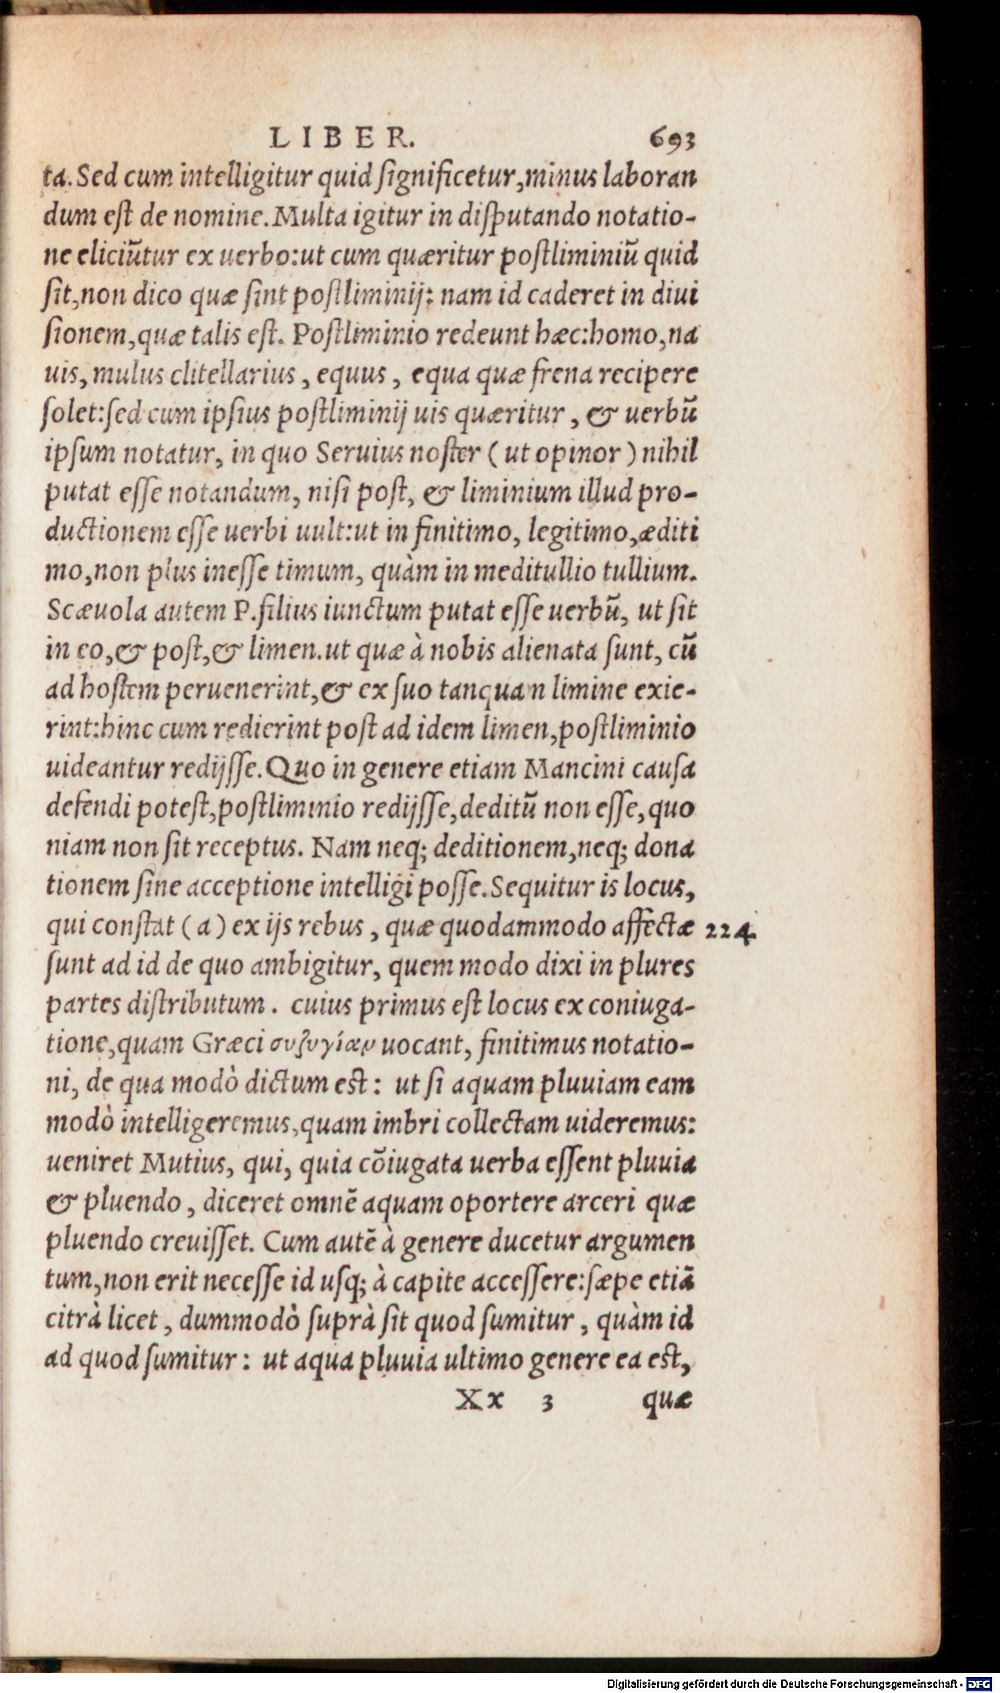 LIBER. 693
ta. Sed cum intelligitur quid significetur, minus laboran
dum est de nomine. Multa igitur in disputando notatio-
ne eliciũtur ex uerbo: ut cum quæritur postliminiũ quid
sit, non dico quæ sint postliminij: nam id caderet in diui
sionem, quæ talis est. Postliminio redeunt hæc: homo, na
uis, mulus clitellarius, equus, equa quæ frena recipere
solet: sed cum ipsius postliminij uis quæritur, & uerbũ
ipsum notatur, in quo Seruius noster (ut opinor) nihil
putat esse notandum, nisi post, & liminium illud pro-
ductionem esse uerbi uult: ut in finitimo, legitimo, æditi
mo, non plus inesse timum, quàm in meditullio tullium.
Scæuola autem P. filius iunctum putat esse uerbũ, ut sit
in eo, & post, & limen. ut quæ à nobis alienata sunt, cũ
ad hostem peruenerint, & ex suo tanquam limine exie-
rint: hinc cum redierint post ad idem limen, postliminio
uideantur redijsse. Quo in genere etiam Mancini causa
defendi potest, postliminio redijsse, deditũ non esse, quo
niam non sit receptus. Nam neq; deditionem, neq; dona
tionem sine acceptione intelligi posse. Sequitur is locus,
qui constat (a) ex ijs rebus, quæ quodammodo affectæ 224.
sunt ad id de quo ambigitur, quem modo dixi in plures
partes distributum. cuius primus est locus ex coniuga-
tione, quam Græci συζυγίαν uocant, finitimus notatio-
ni, de qua modò dictum est: ut si aquam pluuiam eam
modò intelligeremus, quam imbri collectam uideremus:
ueniret Mutius, qui, quia cõiugata uerba essent pluuia
& pluendo, diceret omnẽ aquam oportere arceri quæ
pluendo creuisset. Cum autẽ à genere ducetur argumen
tum, non erit necesse id usq; à capite accessere: sæpe etiã
citrà licet, dummodò suprà sit quod sumitur, quàm id
ad quod sumitur: ut aqua pluuia ultimo genere ea est,
Xx 3 quæ
Digitalisierung gefördert durch die Deutsche Forschungsgemeinschaft - DFG